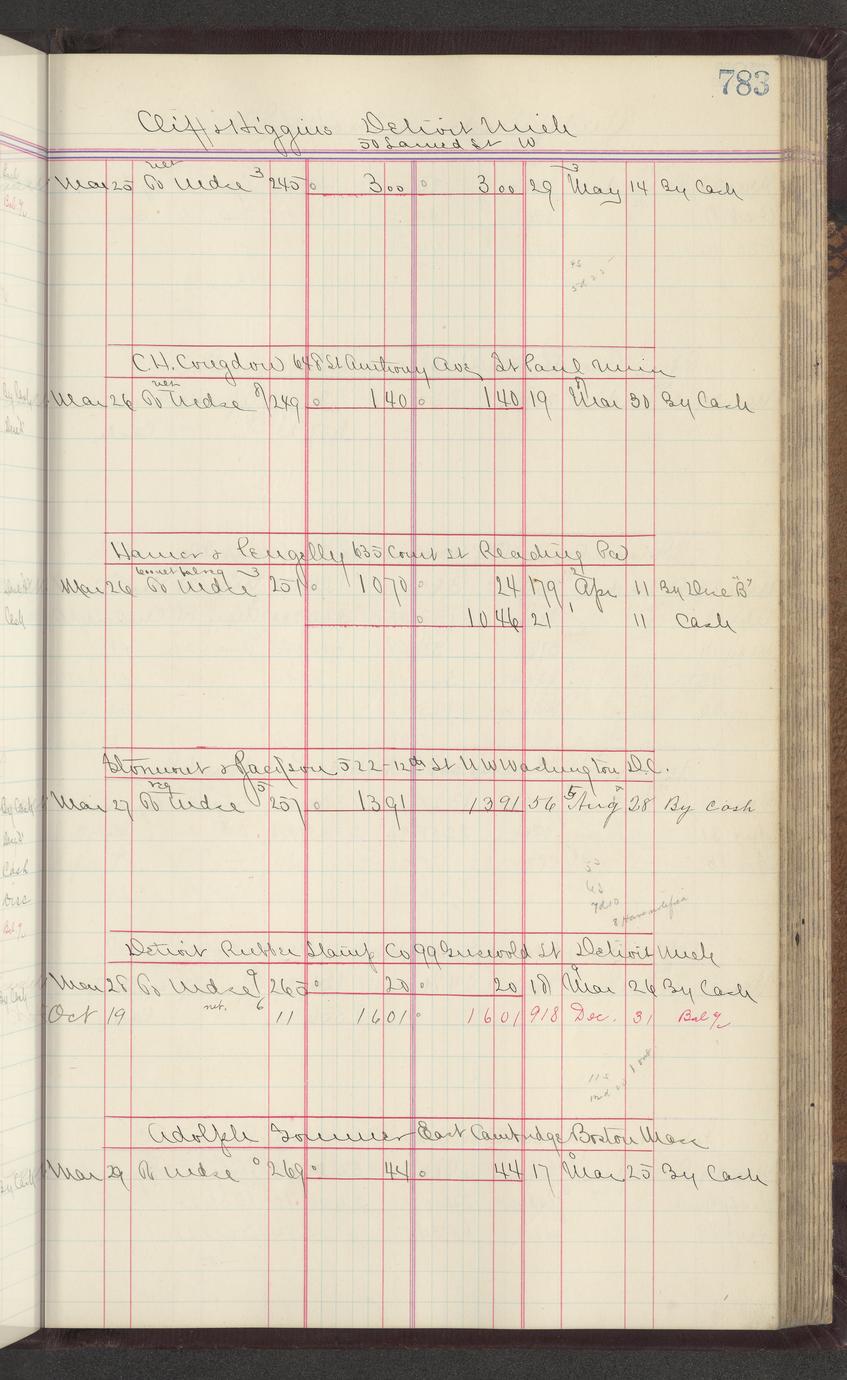 783
Cliff & Higgins Detroit Mich
50 Larned St W
net
Mar 25 To Mdse 3 245 300 300 29 3 May 14 By Cash
C.H. Congdon 648 St Anthony Ave St Paul Minn
net
Mar 26 To Mdse 8 249 140 140 19 Mar 30 By Cash
Hamer & Pengelly 635 Court St Reading Pa
Mar 26 To Mdse 3 251 1070 24 179 2 Apr 11 By Disc "B"
1046 21 1 11 Cash
& Jackson 522-12th St N W Washington D.C.
reg
Mar 27 To Mdse 5 257 1391 1391 56 5 Aug 28 By Cash
Detroit Rubber Stamp Co 99 Griswold St Detroit Mich
Mar 28 To Mdse 9 265 20 20 18 Mar 26 By Cash
Oct 19 net. 6 11 1601 1601 918 Dec. 31 Bal
Adolph Sommer East Cambridge Boston Mass
Mar 29 To Mdse 0 269 44 44 17 Mar 25 By Cash